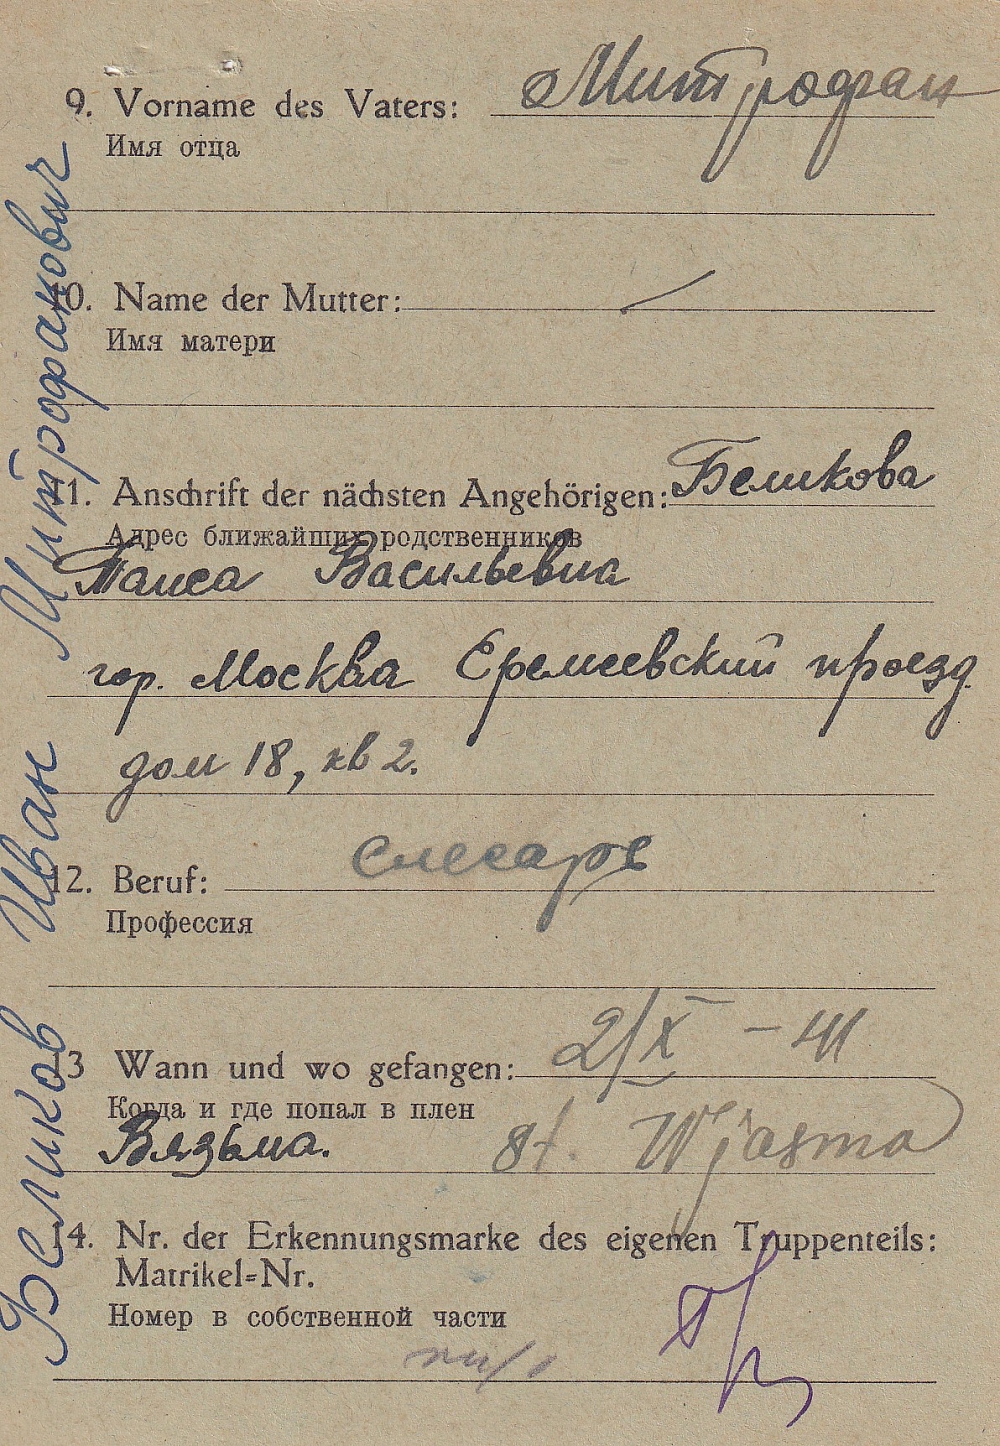 9. Vorname des Vaters: Митрофан
Имя отца
10. Name der Mutter: —
Имя матери
11. Anschrift der nächsten Angehörigen: Беликова
Адрес ближайших родственников
Таиса Васильевна
гор. Москва Еремеевский проезд
дом 18, кв 2.
12. Beruf: слесарь
Профессия
13 Wann und wo gefangen: 2/X – 41
Когда и где попал в плен
Вязьма. Wjasma
14. Nr. der Erkennungsmarke des eigenen Truppenteils:
Matrikel=Nr.
Номер в собственной части
Беликов Иван Митрофанович